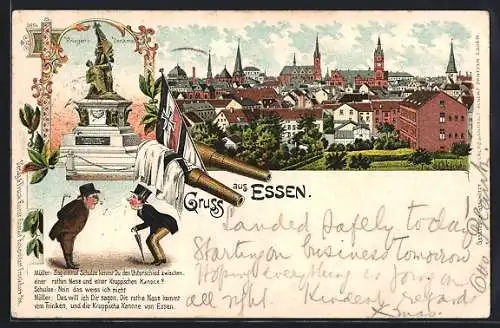 Krieger-
Denkmal
Gruss aus ESSEN.
Landed safely today!
Starting on business tomorrow
Hoping everything is going on
all right. Kindest regards
Müller: Sag einmal Schulze kennst Du den Unterschied zwischen
einer rothen Nase und einer Kruppschen Kanone?
Schulze: Nein das weiss ich nicht
Müller: Das will ich Dir sagen. Die rothe Nase kommt
vom Trinken, und die Kruppsche Kanone von Essen.